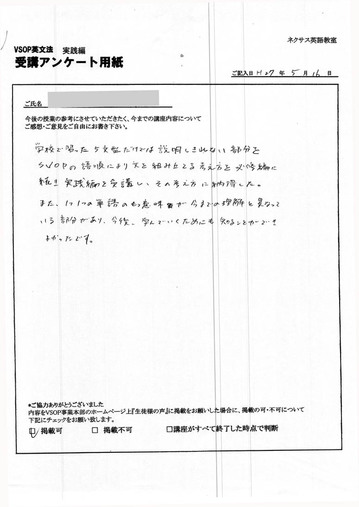 ネクサス英語教室
VSOP英文法 実践編
受講アンケート用紙
ご記入日 H27年 5月 16日
ご氏名
今後の授業の参考にさせていただきたく、今までの講座内容について
ご感想・ご意見をご自由にお書き下さい。
学校で習った5文型だけでは説明しきれない部分を
SVOPの語順により文を組み立てる考え方を必修編に
続き実践編を受講し、その考え方に納得した。
また、1つ1つの単語の意味が今までの理解と異なって
いる部分があり、今後、学んでいくためにも知ることができ
よかったです。
*ご協力ありがとうございました
内容をVSOP事業本部のホームページ上『生徒様の声』に掲載をお願いした場合に、掲載の可・不可について
下記にチェックをお願い致します。
掲載可 □ 掲載不可 □講座がすべて終了した時点で判断